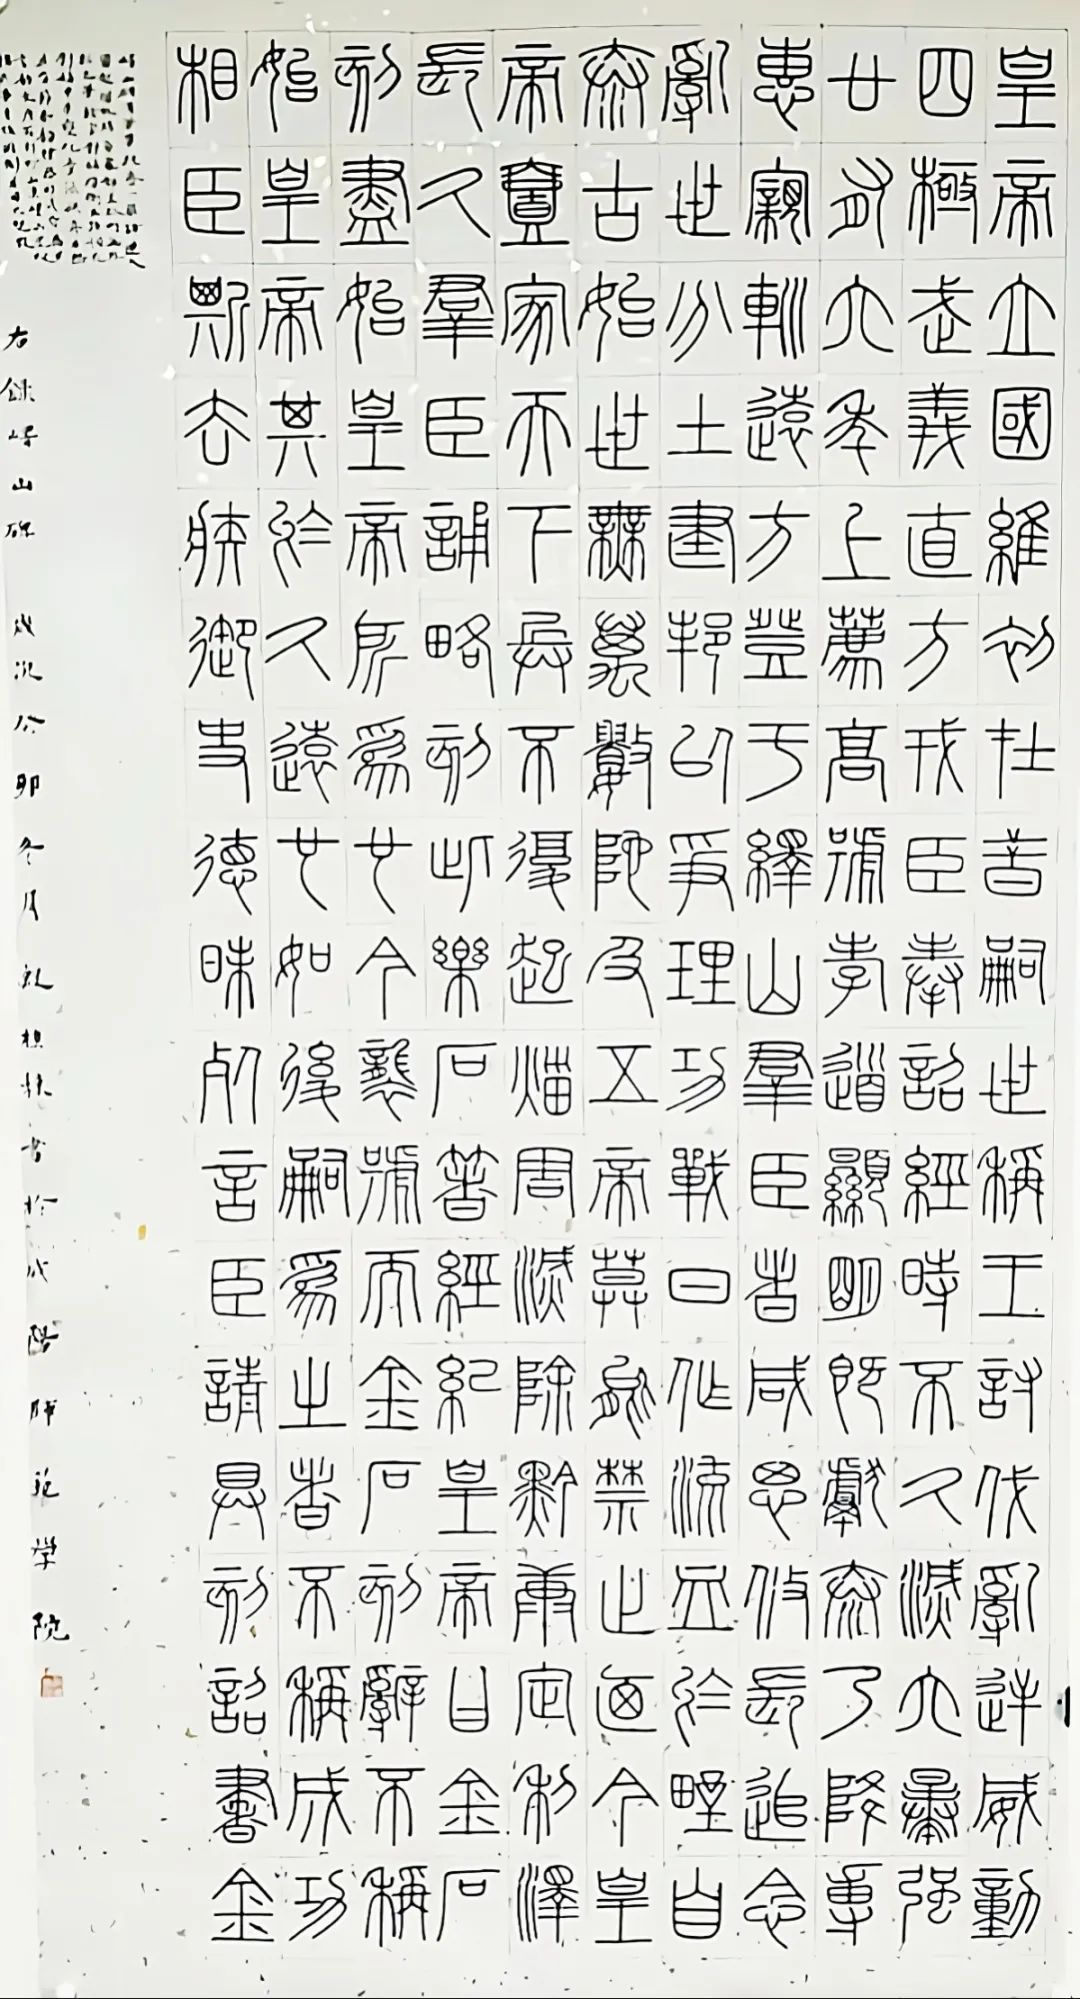 皇帝立國維初在昔嗣世稱王討伐亂逆威動
四極武義直方戎臣奉詔經時不久滅六暴強
廿有六年上薦高號孝道顯明既獻泰乃降專
惠寴軔遠方登于繹山羣臣者咸思攸長追念
亂世分土建邦以爭理功戰日作流血於野自
泰古始世無萬數陁及五帝莫能禁止廼今皇
帝壹家天下兵不復起災害滅除黔康定利澤
長久羣臣誦略刻此樂石著經紀皇帝曰金石
刻盡始皇帝所為也今襲號而金石刻辭不稱
始皇帝其於久遠也如後嗣為之者不稱成功
相臣斯去疾御史德昧死言臣請具刻詔書金
右錄嶧山碑 歲次癸卯冬月 書於咸陽師範學院